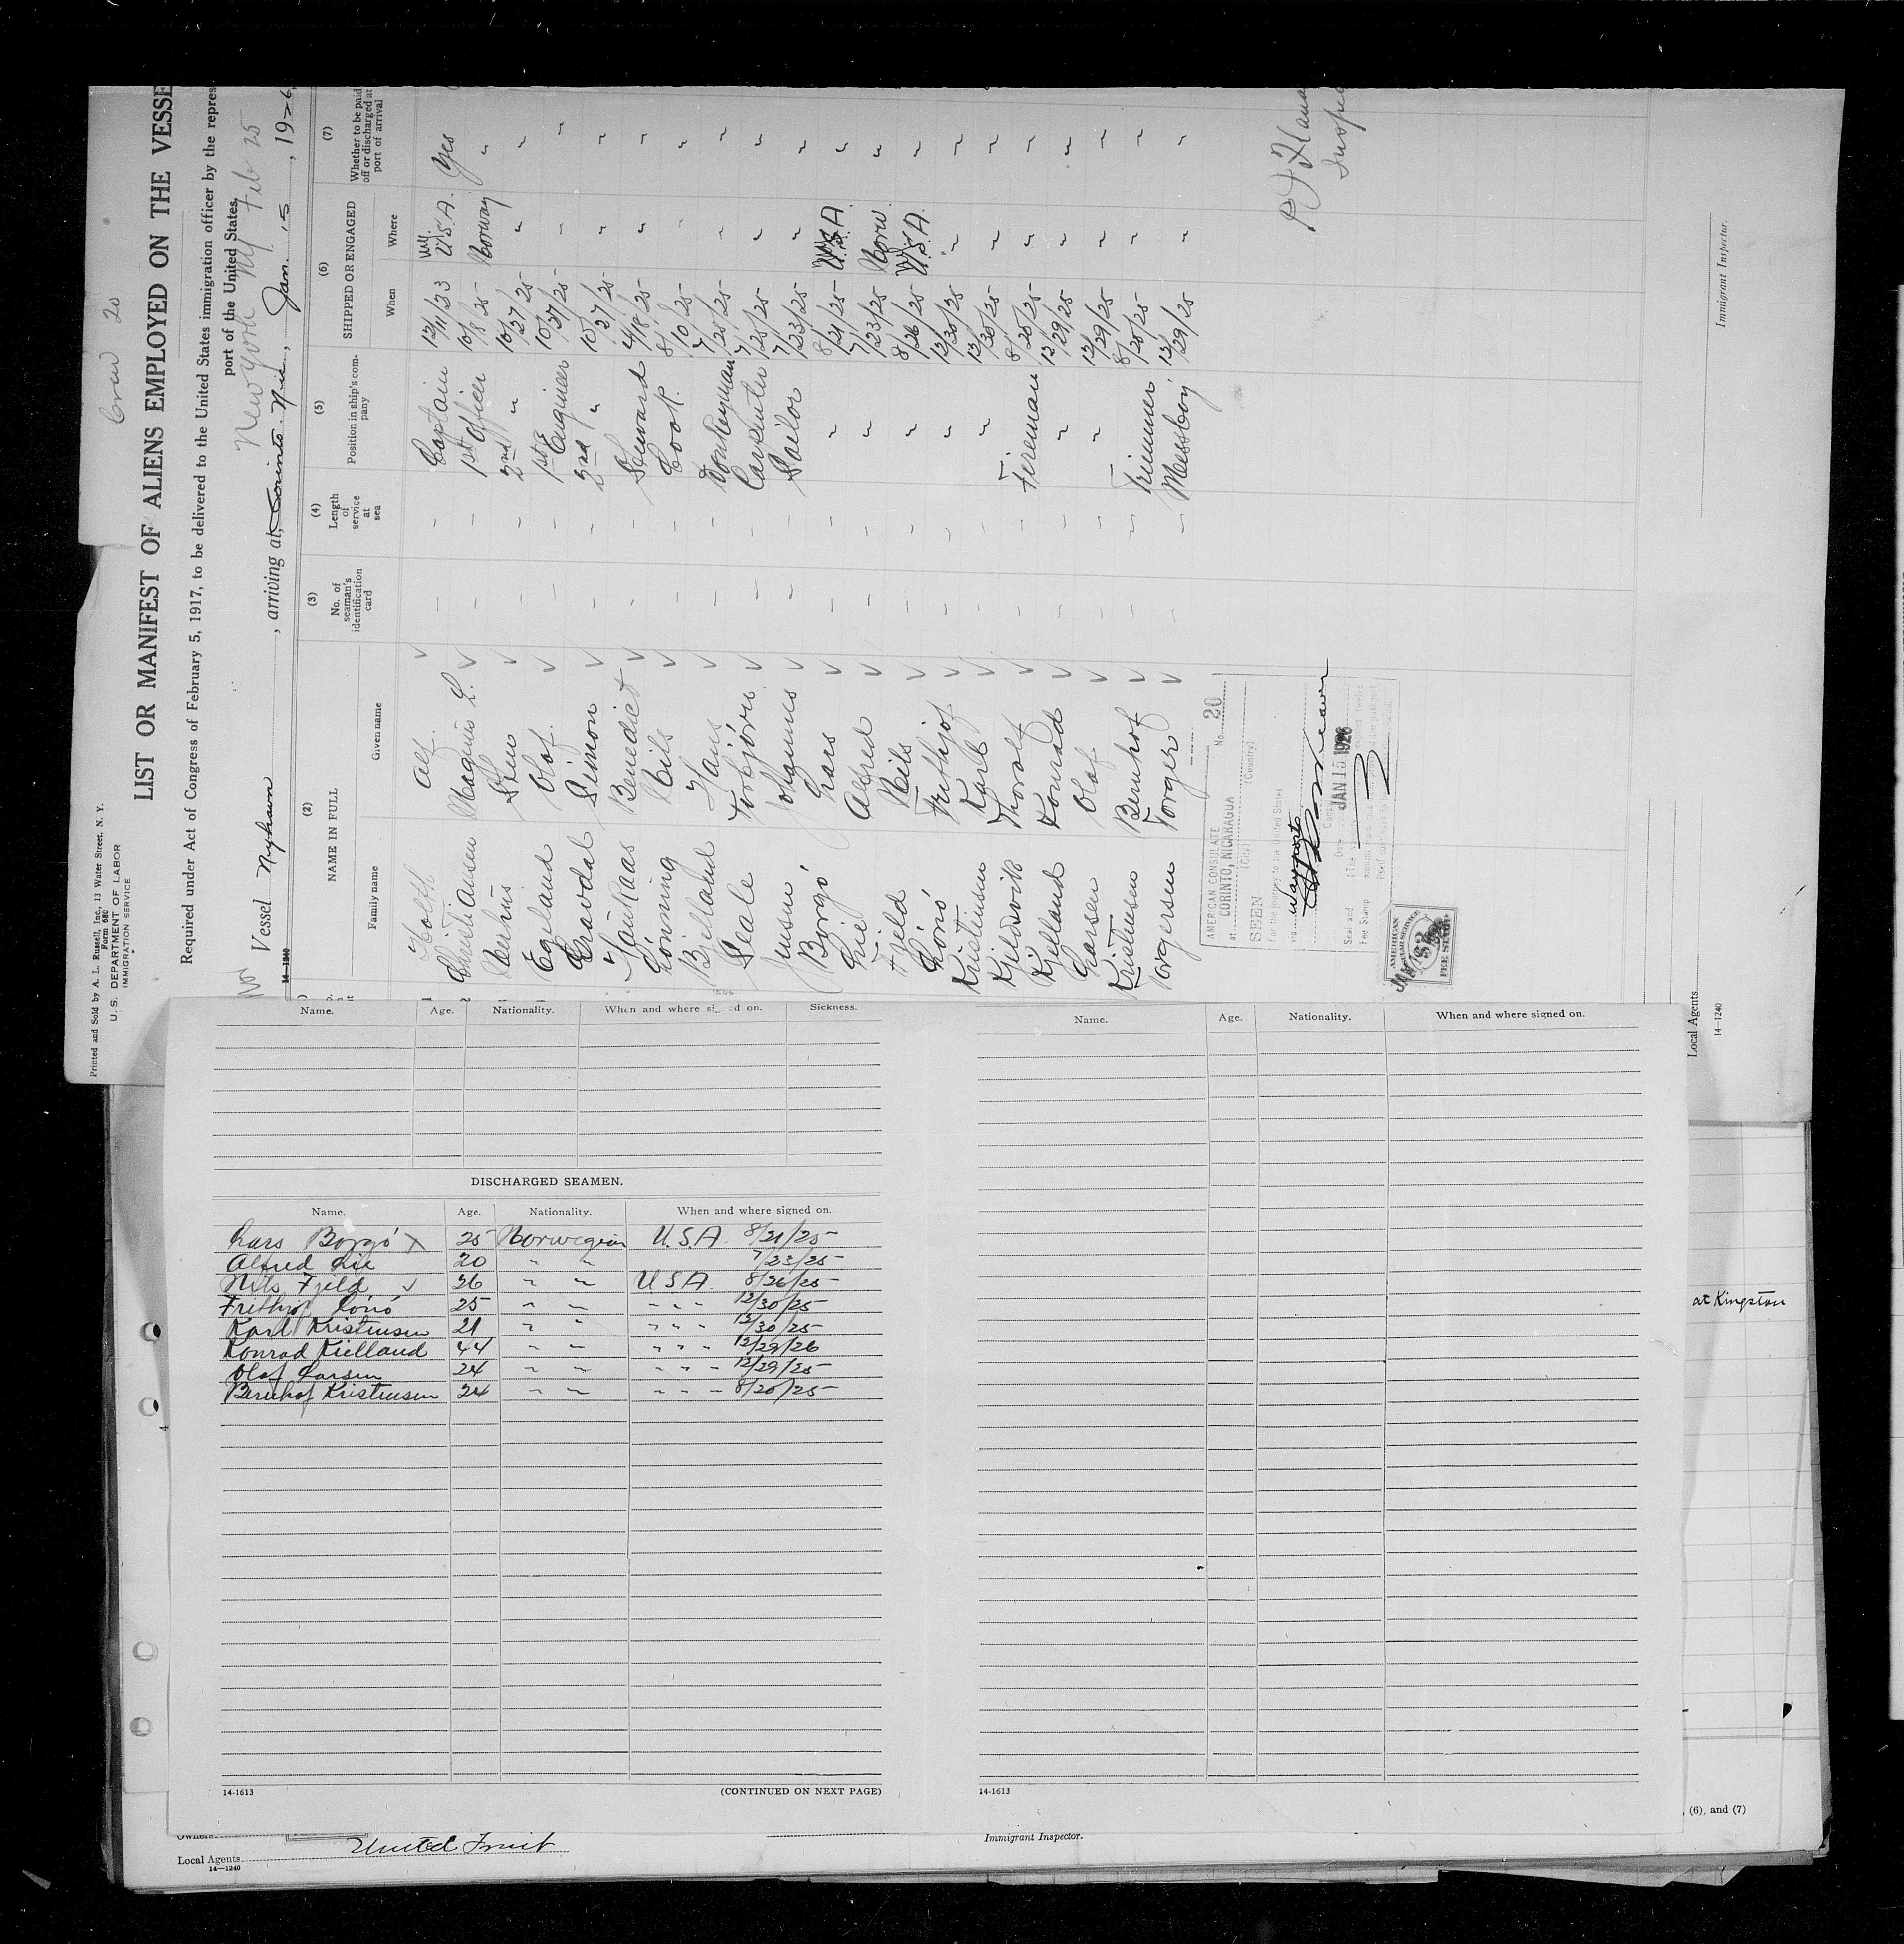 Crew 20
LIST OR MANIFEST OF ALIENS EMPLOYED ON THE VESSE
Required under Act of Congress of February 5, 1917, to be delivered to the United States immigration officer by the repres
port of the United States.
New York NY Feb 25
Vessel Nyhavn, arriving at Corinto Nic, Jan. 15, 1926,
Printed and Sold by A. L. Russell, Inc., 13 Water Street, N. Y.
Form 680
U. S. DEPARTMENT OF LABOR
IMMIGRATION SERVICE
14-1240
(2) (3) (4) (5) (6) (7)
NAME IN FULL
Family name Given name
No. of seaman's identification card
Length of service at sea
Position in ship's company
SHIPPED OR ENGAGED
When Where
Whether to be paid off or discharged at port of arrival
Holth Alf ✓ - - Captain 12/11/23 NY. U.S.A. Yes
Christiansen Magnus L. ✓ - - 1st Officer 10/8/25 Norway "
Sten ✓ - - 2nd " 10/27/25 " "
Egeland Olaf ✓ - - 1st Engineer 10/27/25 " "
Simon ✓ - - 2nd " 10/27/25 " "
Haukaas Benedict ✓ - - Steward 4/18/25 " "
Lönning Nils ✓ - - Cook. 8/10/25 " "
Birkland Hans ✓ - - Donkeyman 7/25/25 " "
Seale Torbjörn ✓ - - Carpenter 7/25/25 " "
Jensen Johannes ✓ - - Sailor 7/23/25 " "
Borgó Lars ✓ - - " 8/21/25 U.S.A. "
Lie Alfred ✓ - - " 7/23/25 Norw. "
Fjeld Nils ✓ - - " 8/26/25 U.S.A. "
Lönó Frithjof ✓ - - " 12/30/25 " "
Kristensen Karl ✓ - - " 12/30/25 " "
Kjeldsvik Thoralf ✓ - - Fireman 8/20/25 " "
Kjelland Konrad ✓ - - " 12/29/25 " "
Larsen Olaf ✓ - - " 12/29/25 " "
Kristensen Bernhof ✓ - - Trimmer 8/20/25 " "
Torgersen Torger ✓ - - Messboy 12/29/25 " "
AMERICAN CONSULATE No. 20
at CORINTO, NICARAGUA
(City) (Country)
SEEN
For the journey to the United States
via
JAN 15 1926
Seal and
Fee Stamp
AMERICAN
CONSULAR SERVICE
FEE STAMP
Immigrant Inspector.
Local Agents
14—1240
Name. Age. Nationality. When and where signed on. Sickness.
DISCHARGED SEAMEN.
Name. Age. Nationality. When and where signed on.
Lars Borgó X 25 Norwegian U.S.A. 8/21/25
Alfred Lie 20 " " 7/23/25
Nils Fjeld ✓ 26 " " U S A. 8/26/25
Frithjof Lönó 25 " " " " " 12/30/25
Karl Kristensen 21 " " " " " 12/30/25
Konrad Kielland 44 " " " " " 12/29/26
Olaf Larsen 24 " " " " " 12/29/25
Bernhof Kristensen 24 " " " " " 8/20/25
14-1613
(CONTINUED ON NEXT PAGE)
Name. Age. Nationality. When and where signed on.
14-1613
at Kingston
, (6), and (7)
Owners
Local Agents United Fruit
14—1240
Immigrant Inspector.